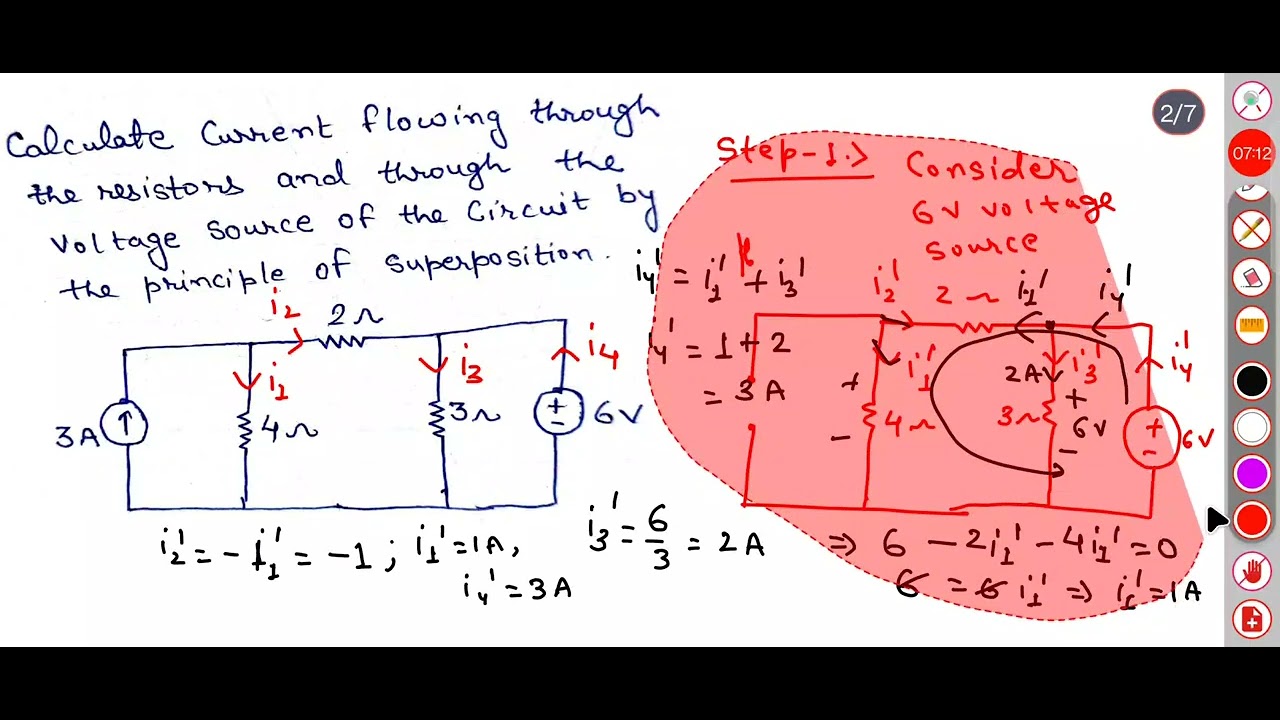 Calculate Current flowing through
the resistors and through the
voltage source of the Circuit by
the principle of superposition.
i2
2Ω
i1
i3
i4
3A
4Ω
3Ω
6V
i2' = - i1' = -1 ; i1' = 1A,
i4' = 3A
i3' = 6/3 = 2A
Step-1.>
Consider
6V voltage
source
i4' = i1' + i3'
i4' = 1+2
= 3A
i2'
2Ω
i1'
i4'
i1'
2A
i3'
i4'
+
-
4Ω
3Ω
+
6V
-
+
-
6V
⇒ 6 - 2i1' - 4i1' = 0
6 = 6 i1' ⇒ i1' = 1A
2/7
07:12